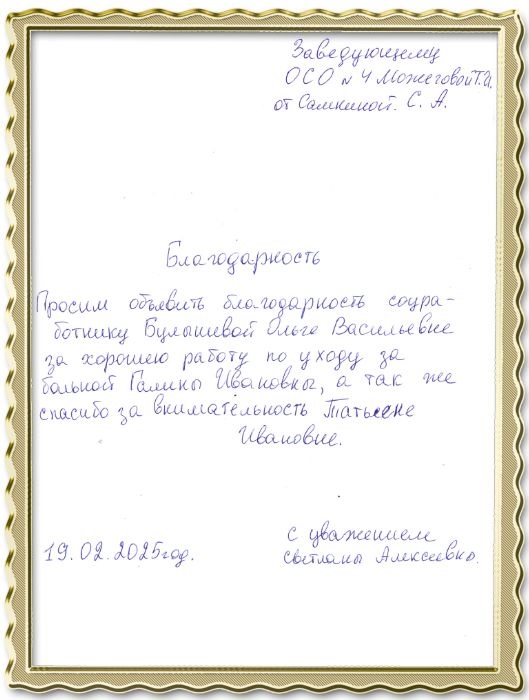 Заведующему
ОСО № 4 Можеговой Т.И.
от Самкиной. С. А.
Благодарность
Просим объявить благодарность соцра-
ботнику Булышевой Ольге Васильевне
за хорошею работу по уходу за
больной Галины Ивановны, а так же
спасибо за внимательность Татьяне
Ивановне.
19.02.2025год.
с уважением
светланы Алексеевно.